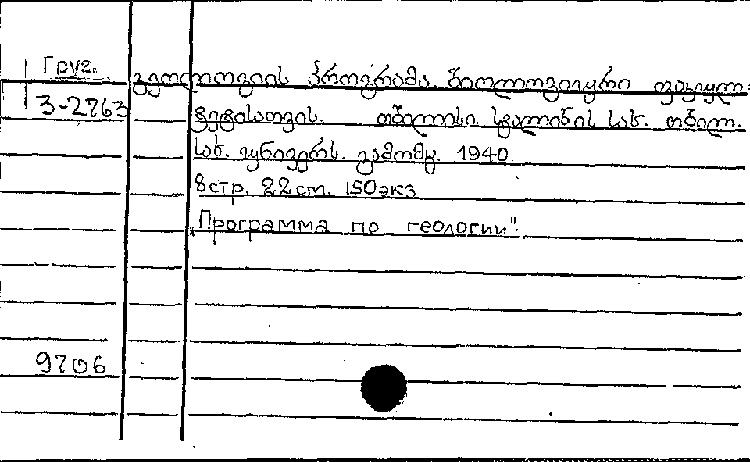 Груз.
3-2763
გეოლოგიის პროგრამა ბიოლოგიური ფაკულ-
ტეტისათვის. თბილისი. სტალინის სახ. თბილ.
სახ. უნივერს. გამომც. 1940
8 стр. 22 cm. 150 экз
„Программа по геологии".
9706